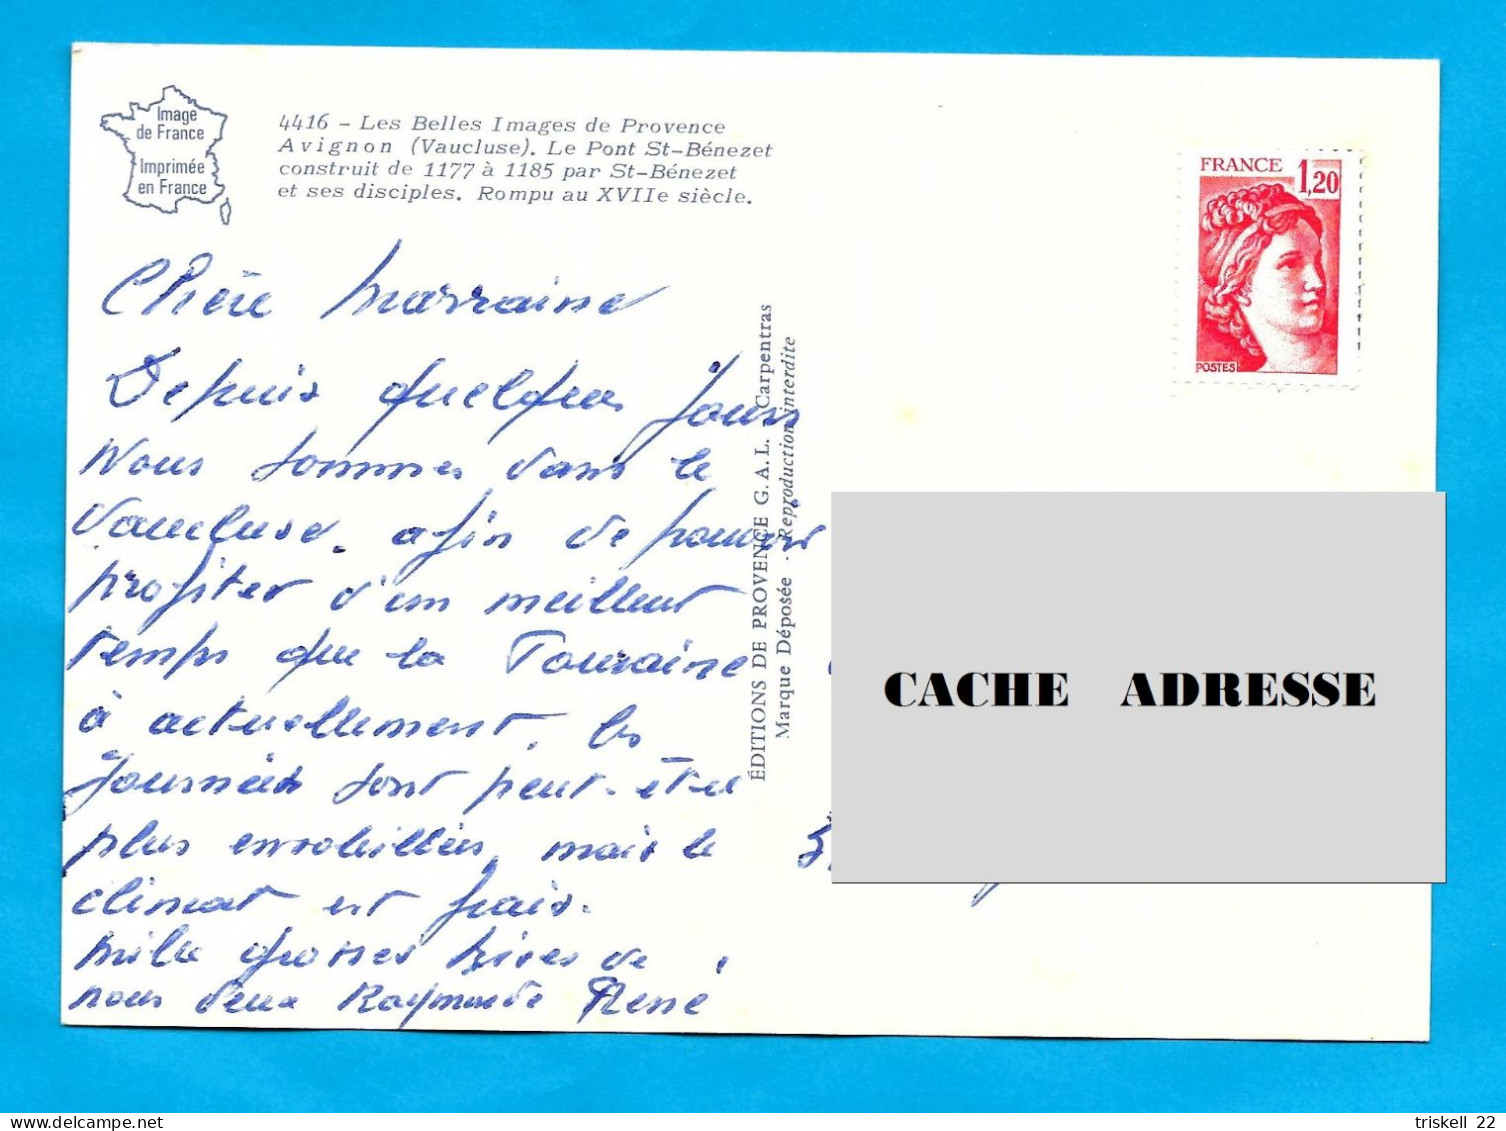 Image
de France
Imprimée
en France
4416 - Les Belles Images de Provence
Avignon (Vaucluse). Le Pont St-Bénezet
construit de 1177 à 1185 par St-Bénezet
et ses disciples. Rompu au XVIIe siècle.
FRANCE 1,20
POSTES
Chère Marraine
Depuis quelques jours
Nous sommes dans le
Vaucluse. afin de pouvoir
profiter d'un meilleur
temps que la Touraine
à actuellement. les
journées sont peut-être
plus ensoleillées, mais le
climat est frais.
Mille grosses bises de
nous deux Raymonde René
ÉDITIONS DE PROVENCE G.A.L. - Carpentras
Marque Déposée - Reproduction interdite
CACHE ADRESSE
triskell 22